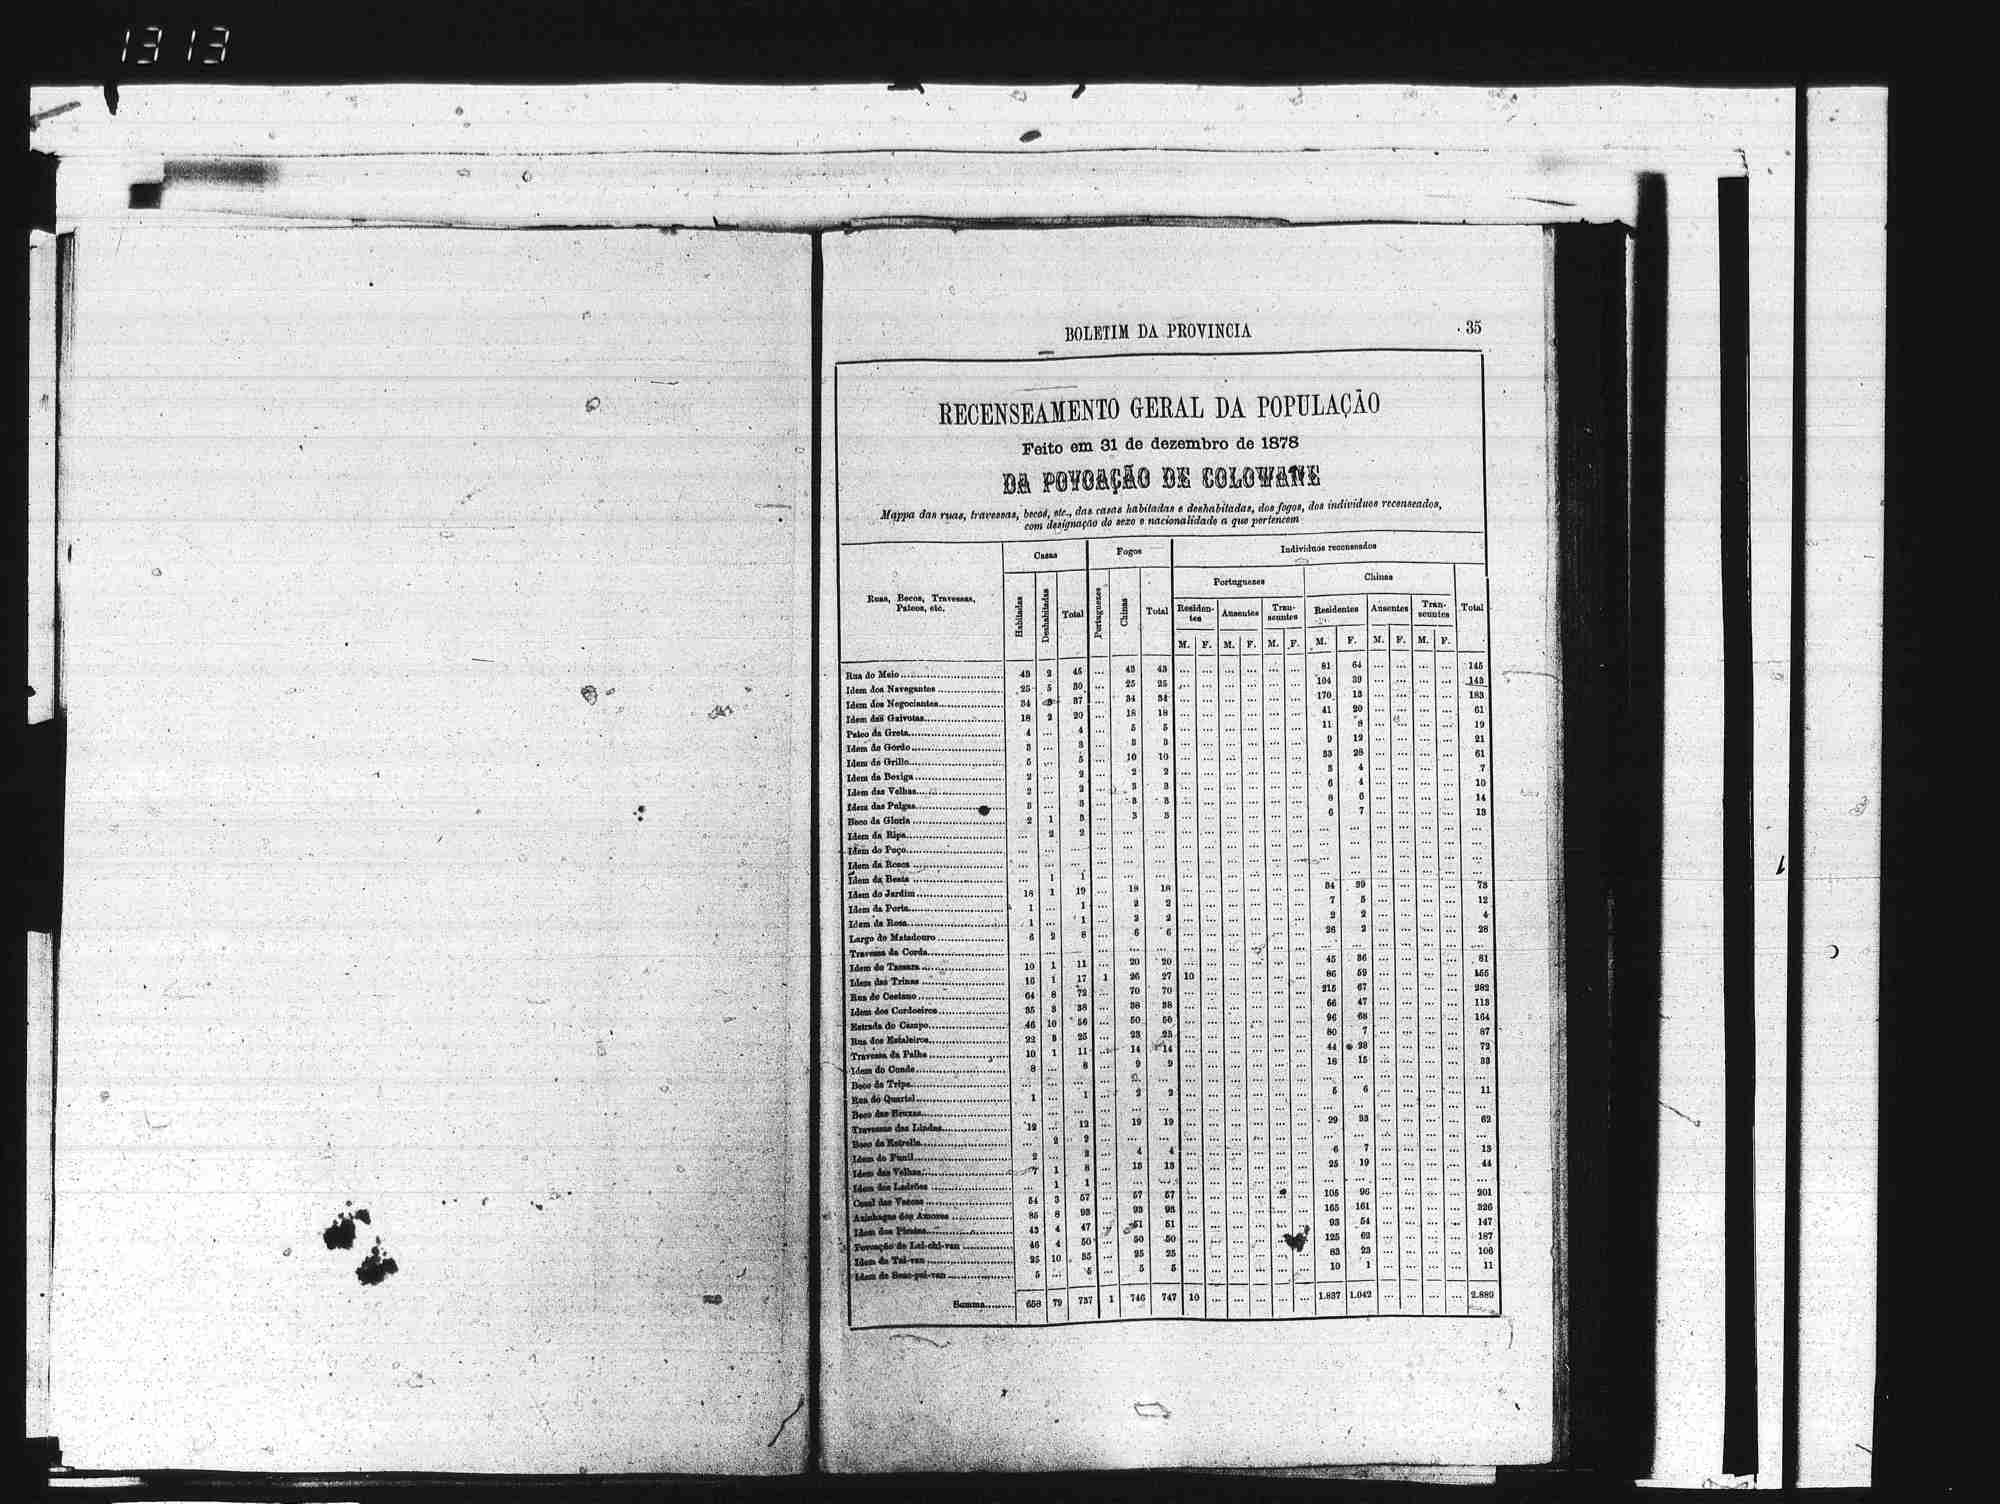 1313
BOLETIM DA PROVINCIA 35
RECENSEAMENTO GERAL DA POPULAÇÃO
Feito em 31 de dezembro de 1878
DA POVOAÇÃO DE COLOWANE
Mappa das ruas, travessas, becos, etc., das casas habitadas e deshabitadas, dos fogos, dos individuos recenseados,
com designação do sexo e nacionalidade a que pertencem
Ruas, Becos, Travessas, Pateos, etc. Casas Fogos Individuos recenseados
Portuguezes Chinas
Habitadas Deshabitadas Total Portuguezes Chinas Total Residentes Ausentes Transeuntes Residentes Ausentes Transeuntes Total
M. F. M. F. M. F. M. F. M. F. M. F.
Rua do Meio 43 2 45 ... 43 43 ... ... ... ... ... ... 81 64 ... ... ... ... 145
Idem dos Navegantes 25 5 30 ... 25 25 ... ... ... ... ... ... 104 39 ... ... ... ... 143
Idem dos Negociantes 34 3 37 ... 34 34 ... ... ... ... ... ... 170 13 ... ... ... ... 183
Idem das Gaivotas 18 2 20 ... 18 18 ... ... ... ... ... ... 41 20 ... ... ... ... 61
Pateo da Greta 4 ... 4 ... 5 5 ... ... ... ... ... ... 11 8 ... ... ... ... 19
Idem do Gordo 3 ... 3 ... 3 3 ... ... ... ... ... ... 9 12 ... ... ... ... 21
Idem do Grillo 5 ... 5 ... 10 10 ... ... ... ... ... ... 33 28 ... ... ... ... 61
Idem da Bexiga 2 ... 2 ... 2 2 ... ... ... ... ... ... 3 4 ... ... ... ... 7
Idem das Velhas 2 ... 2 ... 3 3 ... ... ... ... ... ... 6 4 ... ... ... ... 10
Idem das Pulgas 3 ... 3 ... 3 3 ... ... ... ... ... ... 8 6 ... ... ... ... 14
Beco da Gloria 2 1 3 ... 3 3 ... ... ... ... ... ... 6 7 ... ... ... ... 13
Idem da Ripa ... 2 2 ... ... ... ... ... ... ... ... ... ... ... ... ... ... ... ...
Idem do Poço ... ... ... ... ... ... ... ... ... ... ... ... ... ... ... ... ... ... ...
Idem da Rosca ... ... ... ... ... ... ... ... ... ... ... ... ... ... ... ... ... ... ...
Idem da Besta ... 1 1 ... ... ... ... ... ... ... ... ... ... ... ... ... ... ... ...
Idem do Jardim 18 1 19 ... 18 18 ... ... ... ... ... ... 34 39 ... ... ... ... 73
Idem da Porta 1 ... 1 ... 2 2 ... ... ... ... ... ... 7 5 ... ... ... ... 12
Idem da Rosa 1 ... 1 ... 2 2 ... ... ... ... ... ... 2 2 ... ... ... ... 4
Largo do Matadouro 6 2 8 ... 6 6 ... ... ... ... ... ... 26 2 ... ... ... ... 28
Travessa da Corda ... ... ... ... ... ... ... ... ... ... ... ... ... ... ... ... ... ... ...
Idem do 10 1 11 ... 20 20 ... ... ... ... ... ... 45 36 ... ... ... ... 81
Idem das Trinas 16 1 17 1 26 27 10 ... ... ... ... ... 86 59 ... ... ... ... 155
Rua do Caetano 64 8 72 ... 70 70 ... ... ... ... ... ... 215 67 ... ... ... ... 282
Idem dos Cordoeiros 35 3 38 ... 38 38 ... ... ... ... ... ... 66 47 ... ... ... ... 113
Estrada do Campo 46 10 56 ... 50 50 ... ... ... ... ... ... 96 68 ... ... ... ... 164
Rua dos Estaleiros 22 3 25 ... 23 23 ... ... ... ... ... ... 80 7 ... ... ... ... 87
Travessa da Palha 10 1 11 ... 14 14 ... ... ... ... ... ... 44 28 ... ... ... ... 72
Idem do Conde 8 ... 8 ... 9 9 ... ... ... ... ... ... 18 15 ... ... ... ... 33
Beco da Tripa ... ... ... ... ... ... ... ... ... ... ... ... ... ... ... ... ... ...
Rua do Quartel 1 ... 1 ... 2 2 ... ... ... ... ... ... 5 6 ... ... ... ... 11
Beco das Bruxas ... ... ... ... ... ... ... ... ... ... ... ... ... ... ... ... ... ... ...
Travessas das Lindas 12 ... 12 ... 19 19 ... ... ... ... ... ... 29 33 ... ... ... ... 62
Beco da Estrella ... 2 2 ... ... ... ... ... ... ... ... ... ... ... ... ... ... ... ...
Idem do Funil 2 ... 2 ... 4 4 ... ... ... ... ... ... 6 7 ... ... ... ... 13
Idem das Velhas 7 1 8 ... 13 13 ... ... ... ... ... ... 25 19 ... ... ... ... 44
Idem dos Ladrões ... 1 1 ... ... ... ... ... ... ... ... ... ... ... ... ... ... ... ...
Casal das Vaccas 54 3 57 ... 57 57 ... ... ... ... ... ... 105 96 ... ... ... ... 201
Azinhagas dos Amores 85 8 93 ... 93 93 ... ... ... ... ... ... 165 161 ... ... ... ... 326
Idem dos Piratas 43 4 47 ... 51 51 ... ... ... ... ... ... 93 54 ... ... ... ... 147
Povoação de Lai-chi-van 46 4 50 ... 50 50 ... ... ... ... ... ... 125 62 ... ... ... ... 187
Idem de Tai-van 25 10 35 ... 25 25 ... ... ... ... ... ... 83 23 ... ... ... ... 106
Idem de 5 ... 5 ... 5 5 ... ... ... ... ... ... 10 1 ... ... ... ... 11
Somma 658 79 737 1 746 747 10 ... ... ... ... ... 1.837 1.042 ... ... ... ... 2.889